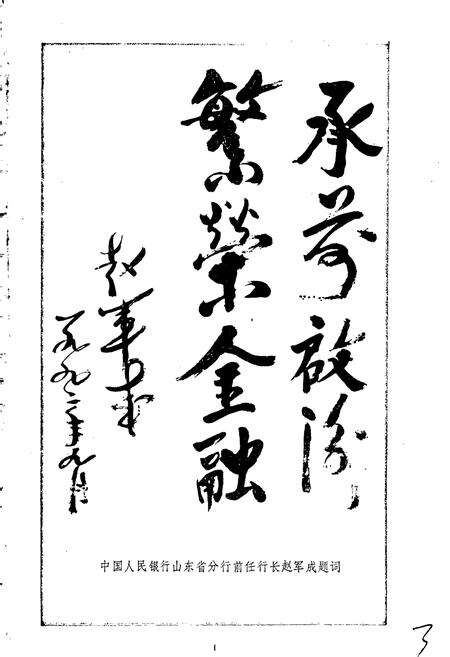 承前啟後
繁榮金融
赵軍成
一九九二年九月
中国人民银行山东省分行前任行长赵军成题词
1